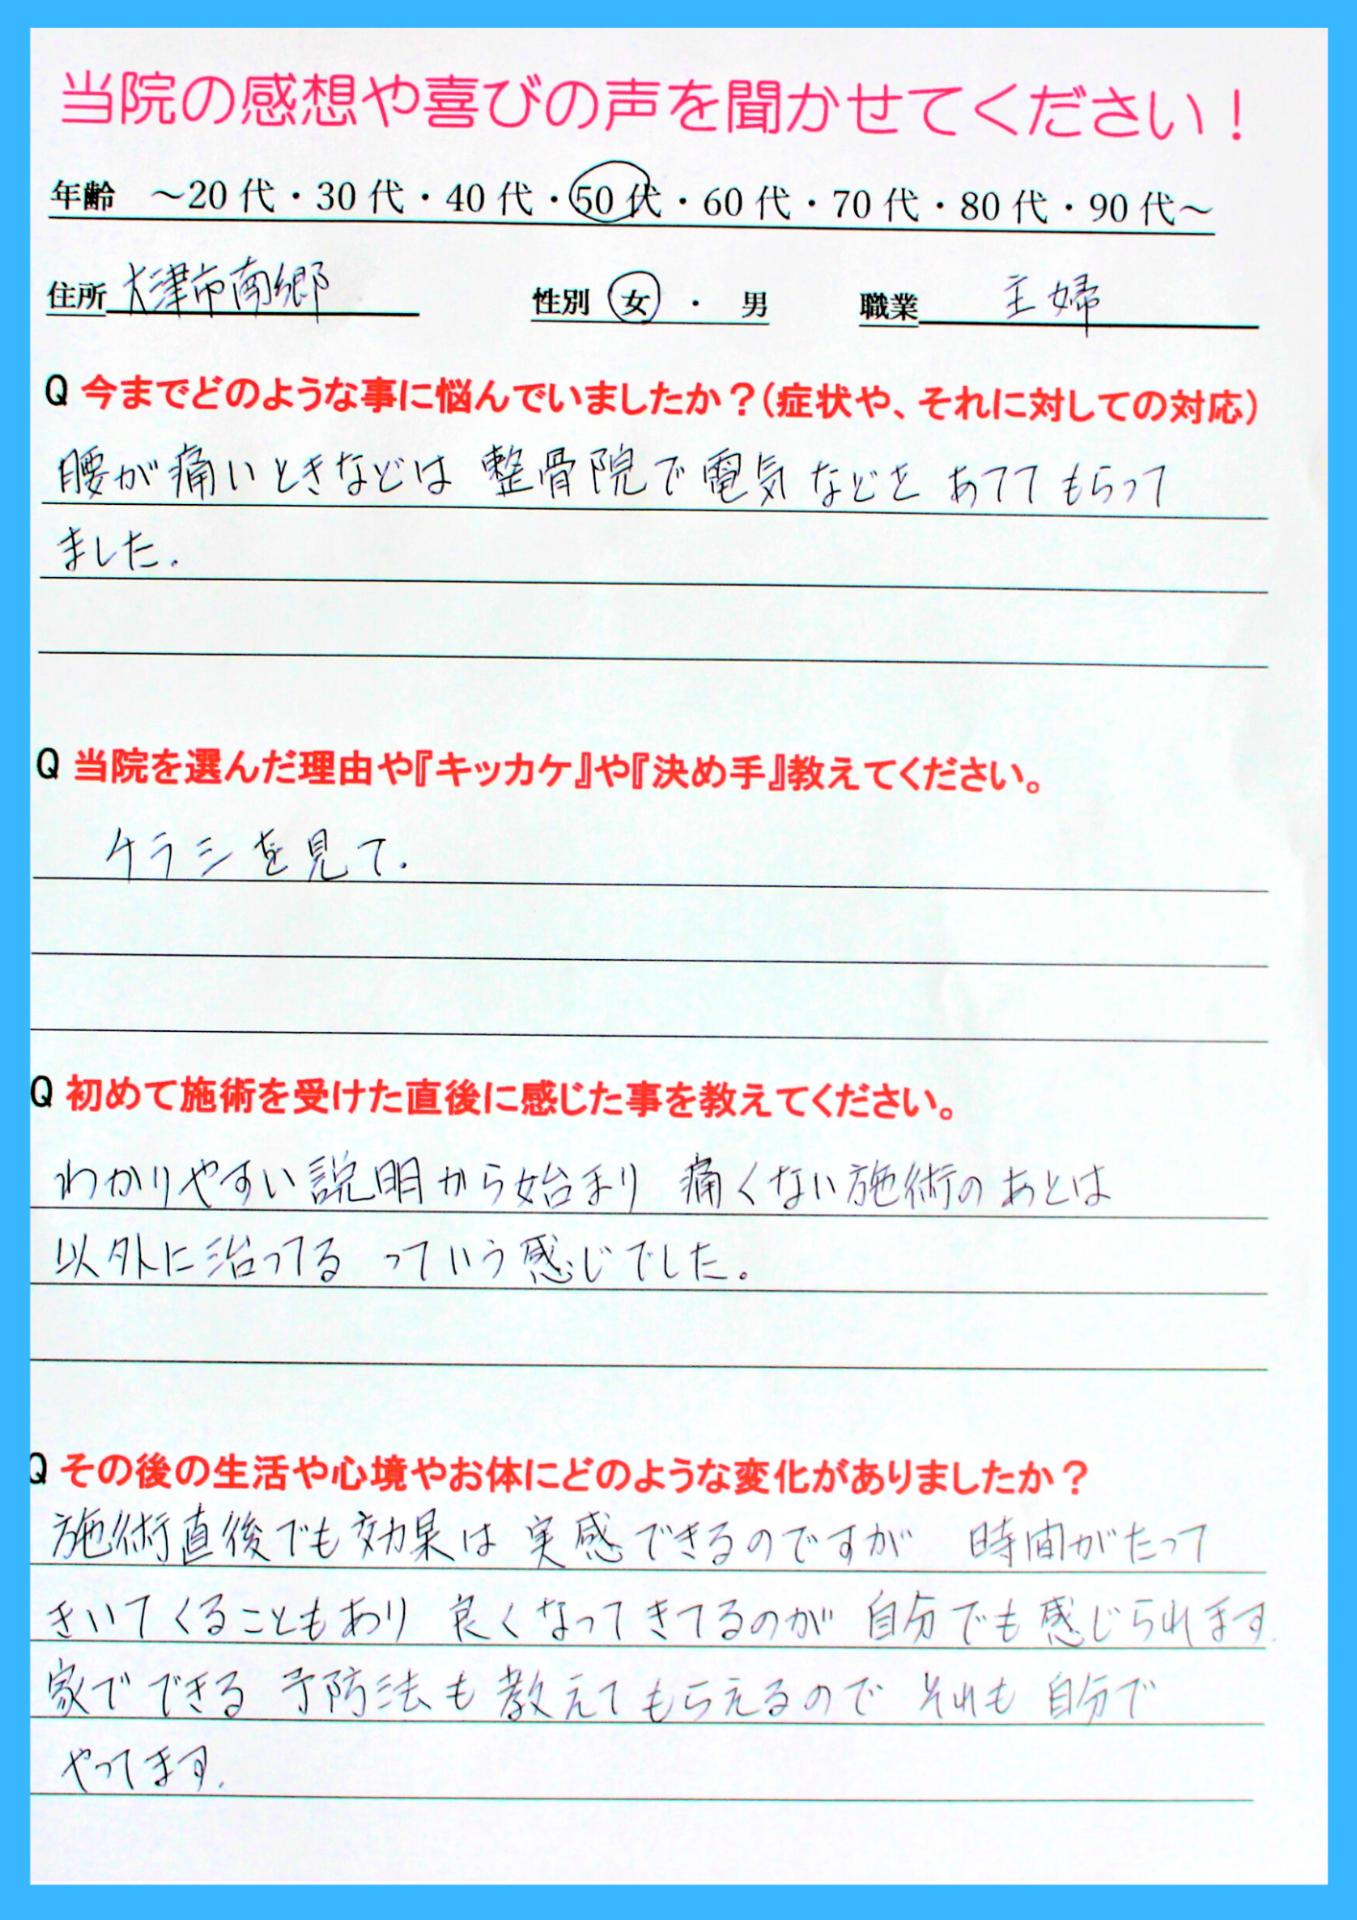 当院の感想や喜びの声を聞かせてください！
年齢 ～20代・30代・40代・50代・60代・70代・80代・90代～
住所 大津市南郷 性別 女 ・ 男 職業 主婦
Q 今までどのような事に悩んでいましたか？（症状や、それに対しての対応）
腰が痛いときなどは 整骨院で電気などを あててもらって
ました.
Q 当院を選んだ理由や『キッカケ』や『決め手』教えてください。
チラシを見て.
Q 初めて施術を受けた直後に感じた事を教えてください。
わかりやすい説明から始まり 痛くない施術のあとは
以外に治ってる っていう感じでした。
Q その後の生活や心境やお体にどのような変化がありましたか？
施術直後でも効果は 実感できるのですが 時間がたって
きいてくることもあり 良くなってきてるのが 自分でも感じられます.
家でできる 予防法も教えてもらえるので それも 自分で
やってます.